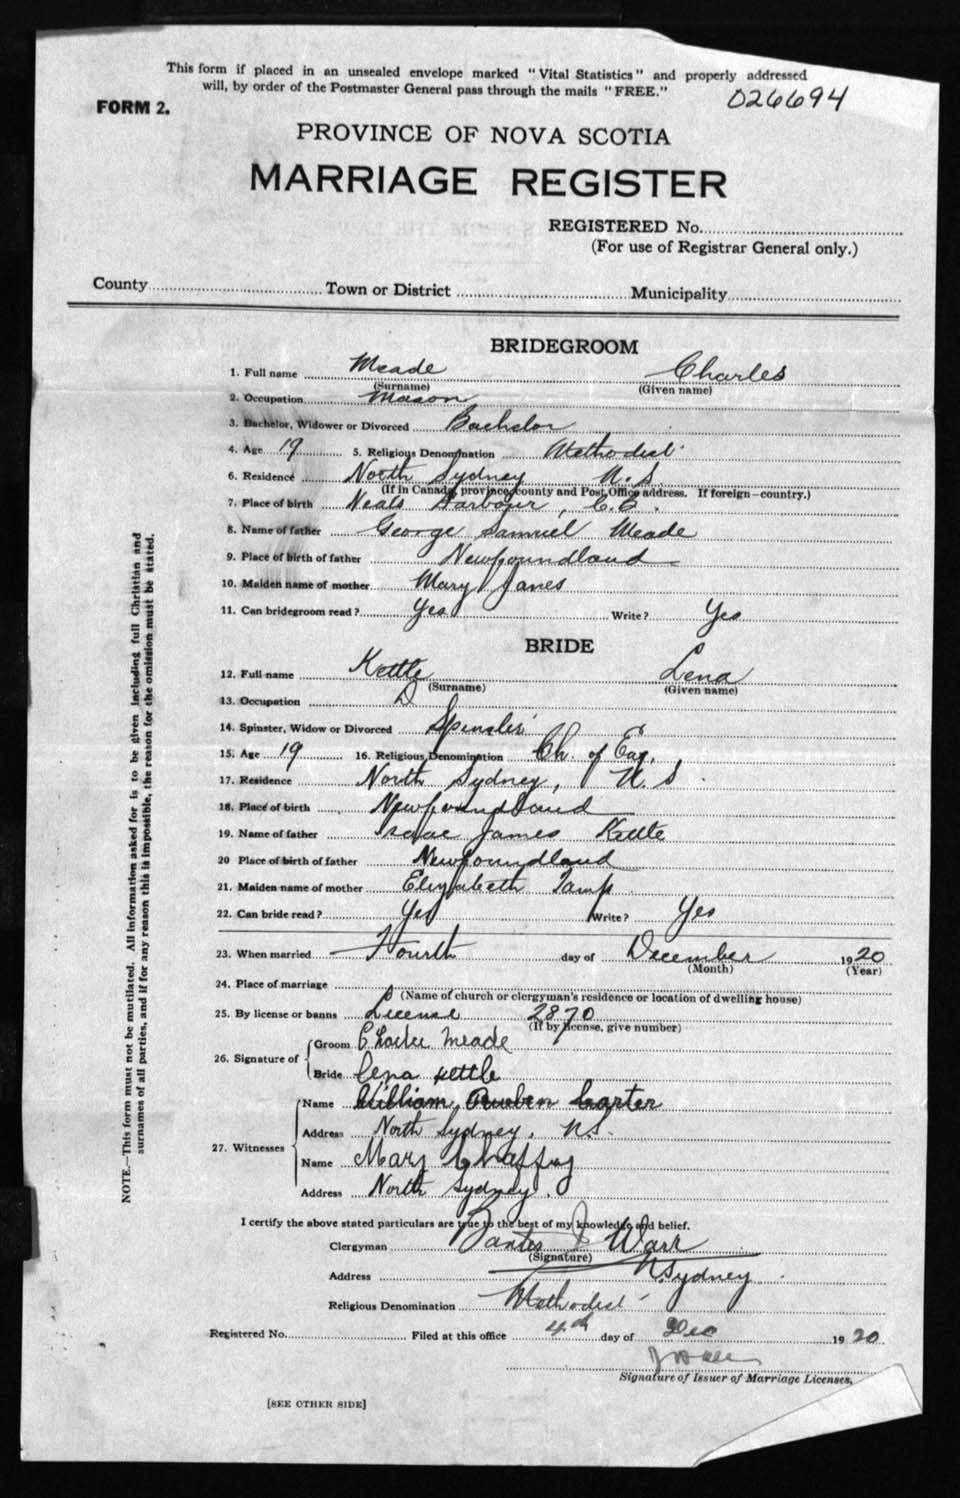 This form if placed in an unsealed envelope marked "Vital Statistics" and properly addressed
will, by order of the Postmaster General pass through the mails "FREE."
026694
FORM 2.
PROVINCE OF NOVA SCOTIA
MARRIAGE REGISTER
REGISTERED No.
(For use of Registrar General only.)
County Town or District Municipality
BRIDEGROOM
1. Full name Meade Charles
(Surname) (Given name)
2. Occupation Mason
3. Bachelor, Widower or Divorced Bachelor
4. Age 19 5. Religious Denomination Methodist
6. Residence North Sydney N.S.
(If in Canada, province, county and Post Office address. If foreign—country.)
7. Place of birth Neals Harbour, C.B.
8. Name of father George Samuel Meade
9. Place of birth of father Newfoundland
10. Maiden name of mother Mary Janes
11. Can bridegroom read? Yes Write? Yes
BRIDE
12. Full name Kettle Lena
(Surname) (Given name)
13. Occupation D
14. Spinster, Widow or Divorced Spinster
15. Age 19 16. Religious Denomination Ch. of Eng.
17. Residence North Sydney, N.S.
18. Place of birth Newfoundland
19. Name of father Isaac James Kettle
20 Place of birth of father Newfoundland
21. Maiden name of mother Elizabeth
22. Can bride read? Yes Write? Yes
23. When married Fourth day of December 1920
(Month) (Year)
24. Place of marriage
(Name of church or clergyman's residence or location of dwelling house)
25. By license or banns License 2870
(If by license, give number)
26. Signature of Groom Charlee Meade
Bride Lena Kettle
27. Witnesses Name William Reuben Carter
Address North Sydney, N.S.
Name Mary Chaffey
Address North Sydney.
I certify the above stated particulars are true to the best of my knowledge and belief.
Clergyman J Warr
(Signature)
Address N. Sydney
Religious Denomination Methodist
Registered No. Filed at this office 4th day of Dec 1920
Signature of Issuer of Marriage Licenses.
[SEE OTHER SIDE]
NOTE.—This form must not be mutilated. All information asked for is to be given including full Christian and
surnames of all parties, and if for any reason this is impossible, the reason for the omission must be stated.